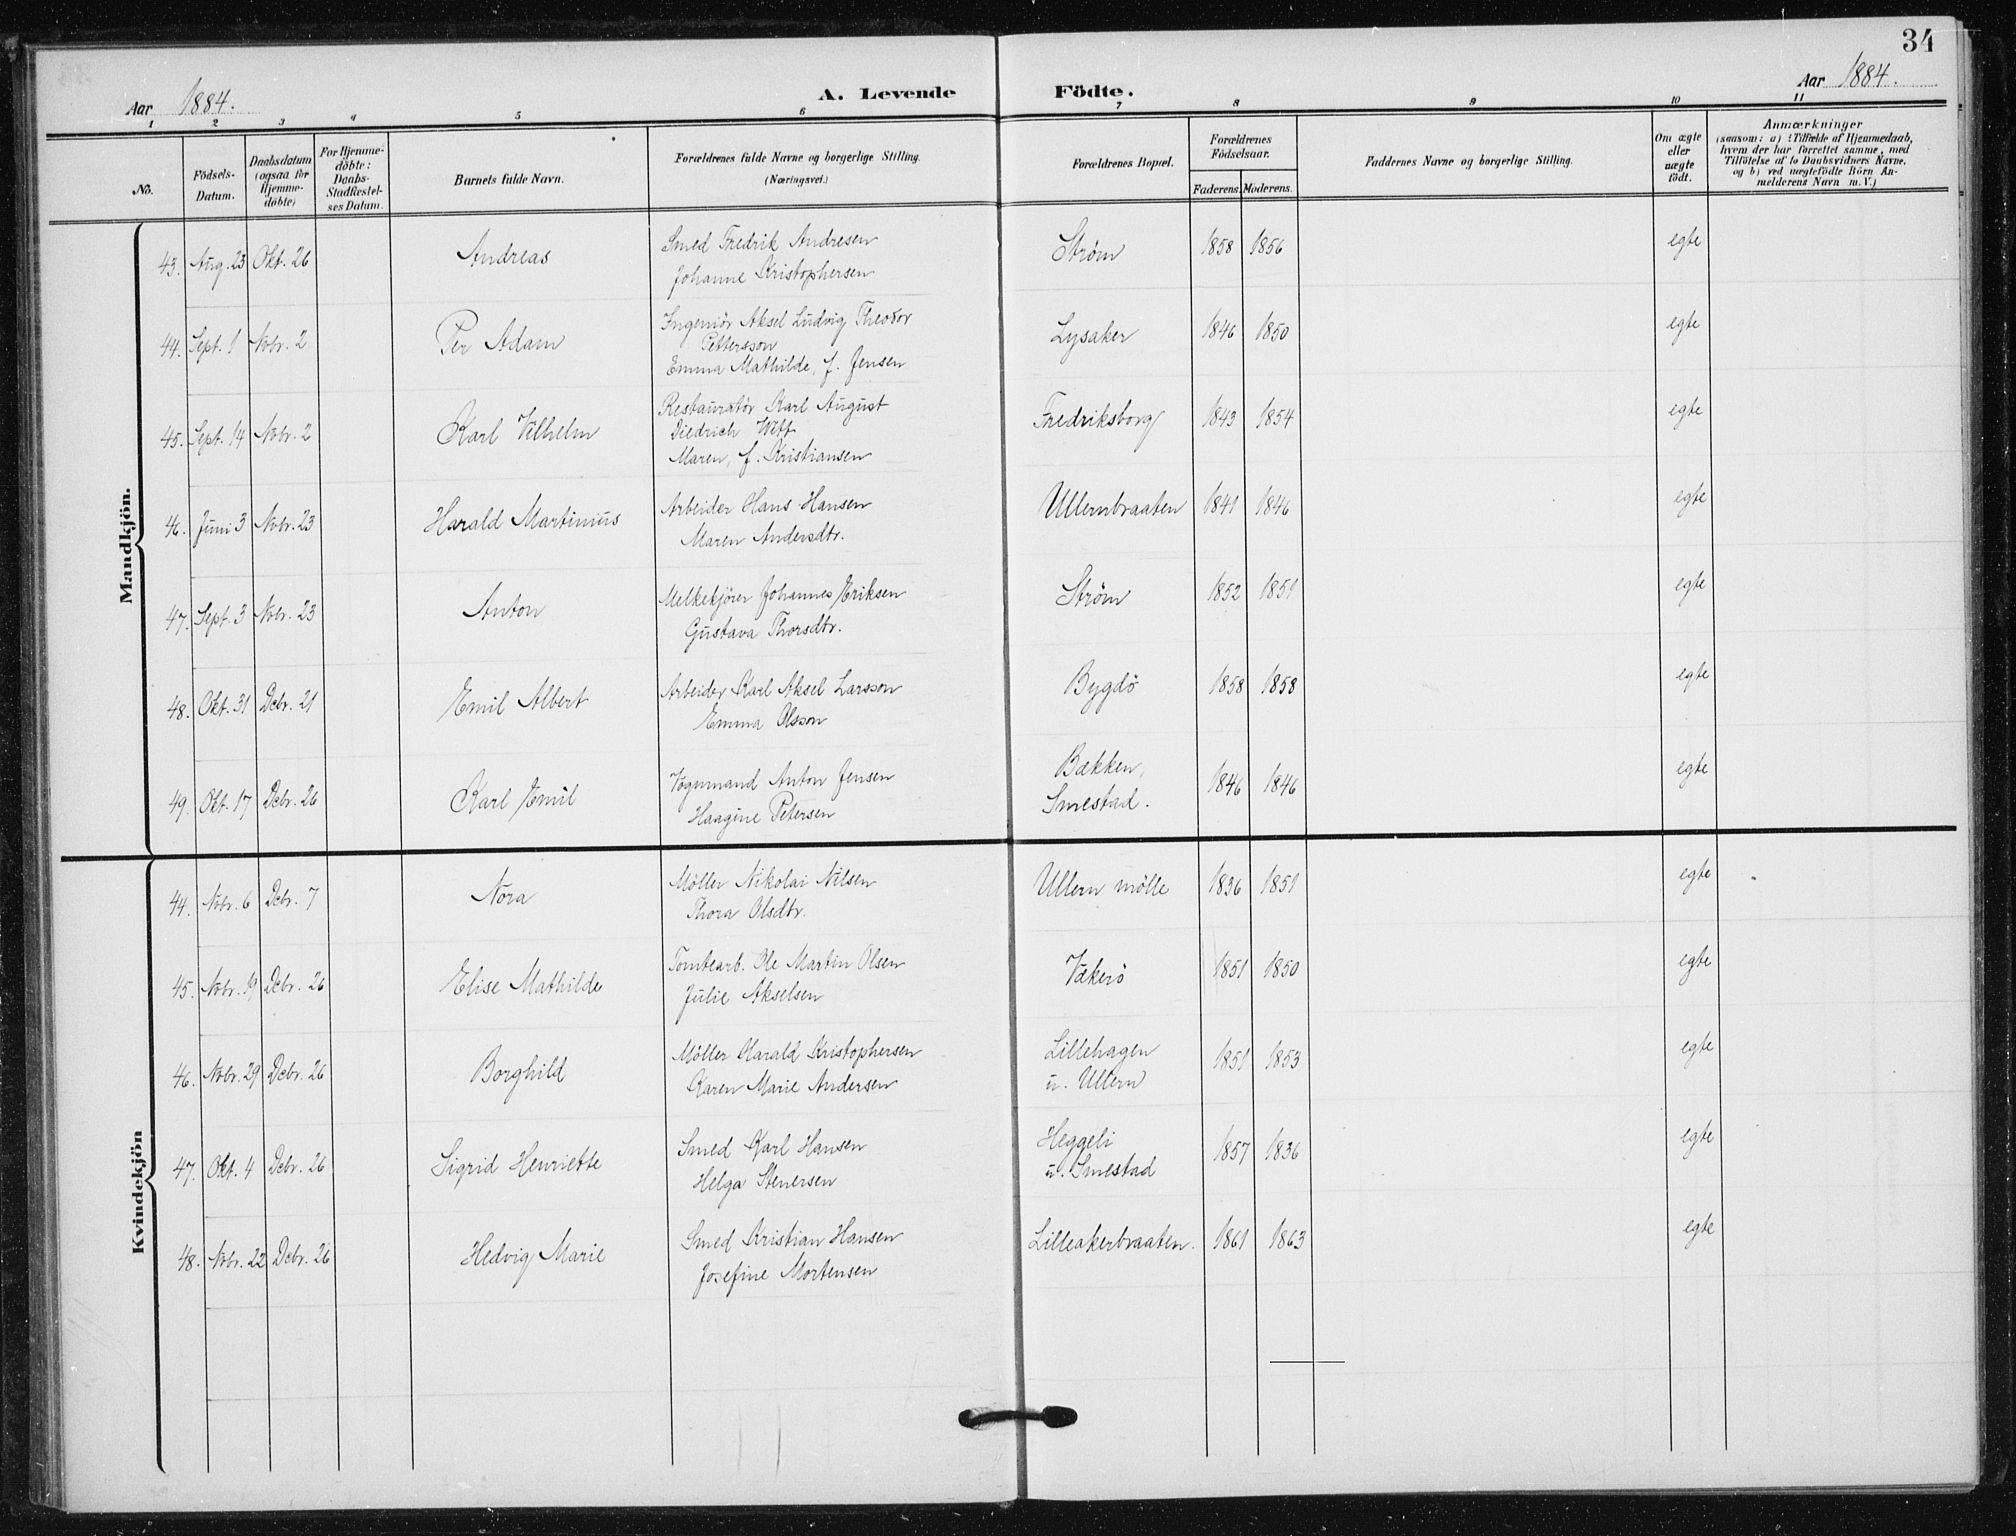 34
Aar 1884. A. Levende Födte. Aar 1884.
1 2 3 4 5 6 7 8 9 10 11
No.
Födsels-
Datum.
Daabsdatum
(ogsaa for
Hjemme-
döbte)
For Hjemme-
döbte:
Daabs-
Stadfæstel-
ses Datum.
Barnets fulde Navn.
Forældrenes fulde Navne og borgerlige Stilling.
(Næringsvei.)
Forældrenes Bopæl.
Forældrenes
Födselsaar.
Faderens. Moderens.
Faddernes Navne og borgerlige Stilling.
Om ægte
eller
uægte
födt.
Anmærkninger
(saasom: a) i Tilfælde af Hjemmedaab,
hvem der har forrettet samme, med
Tilföielse af to Daabsvidners Navne,
og b) ved uægtefödte Börn An-
melderens Navn m. V.)
Mandkjön.
43. Aug. 23 Okt. 26 Andreas Smed Fredrik Andresen Strøm 1858 1856 egte
Johanne Kristophersen
44. Sept. 1 Nvbr. 2 Per Adam Ingeniör Aksel Ludvig Theodor Lysaker 1846 1850 egte
Pettersson
Emma Mathilde, f. Jensen
45. Sept. 14 Nvbr. 2 Karl Vilhelm Restauratör Karl August Fredriksborg 1843 1854 egte
Diedrich Witt
Maren, f. Kristiansen
46. Juni 3 Nvbr. 23 Harald Martinius Arbeider Hans Hansen Ullernbraaten 1841 1846 egte
Maren Andersdtr.
47. Sept. 3 Nvbr. 23 Anton Melkekjörer Johannes Eriksen Strøm 1852 1851 egte
Gustava Thorsdtr.
48. Okt. 31 Dcbr. 21 Emil Albert Arbeider Karl Aksel Larsson Bygdö 1858 1858 egte
Emma Olsson
49. Okt. 17 Dcbr. 26 Karl Emil Vognmand Anton Jensen Bækken, 1846 1846 egte
Haagine Petersen Smestad.
Kvindekjön
44. Nvbr. 6 Dcbr. 7 Nora Möller Nikolai Nilsen Ullern mölle 1836 1851 egte
Thora Olsdtr.
45. Nvbr. 19 Dcbr. 26 Elise Mathilde Tomtearb. Ole Martin Olsen Vækerö 1851 1850 egte
Julie Akselsen
46. Nvbr. 29 Dcbr. 26 Borghild Möller Harald Kristophersen Lillehagen 1851 1853 egte
Karen Marie Andersen u. Ullern
47. Okt. 4 Dcbr. 26 Sigrid Henriette Smed Karl Hansen Heggeli 1857 1836 egte
Helga Stenersen u. Smestad
48. Nvbr. 22 Dcbr. 26 Hedvig Marie Smed Kristian Hansen Lilleakerbraaten. 1861 1863 egte
Josefine Mortensen